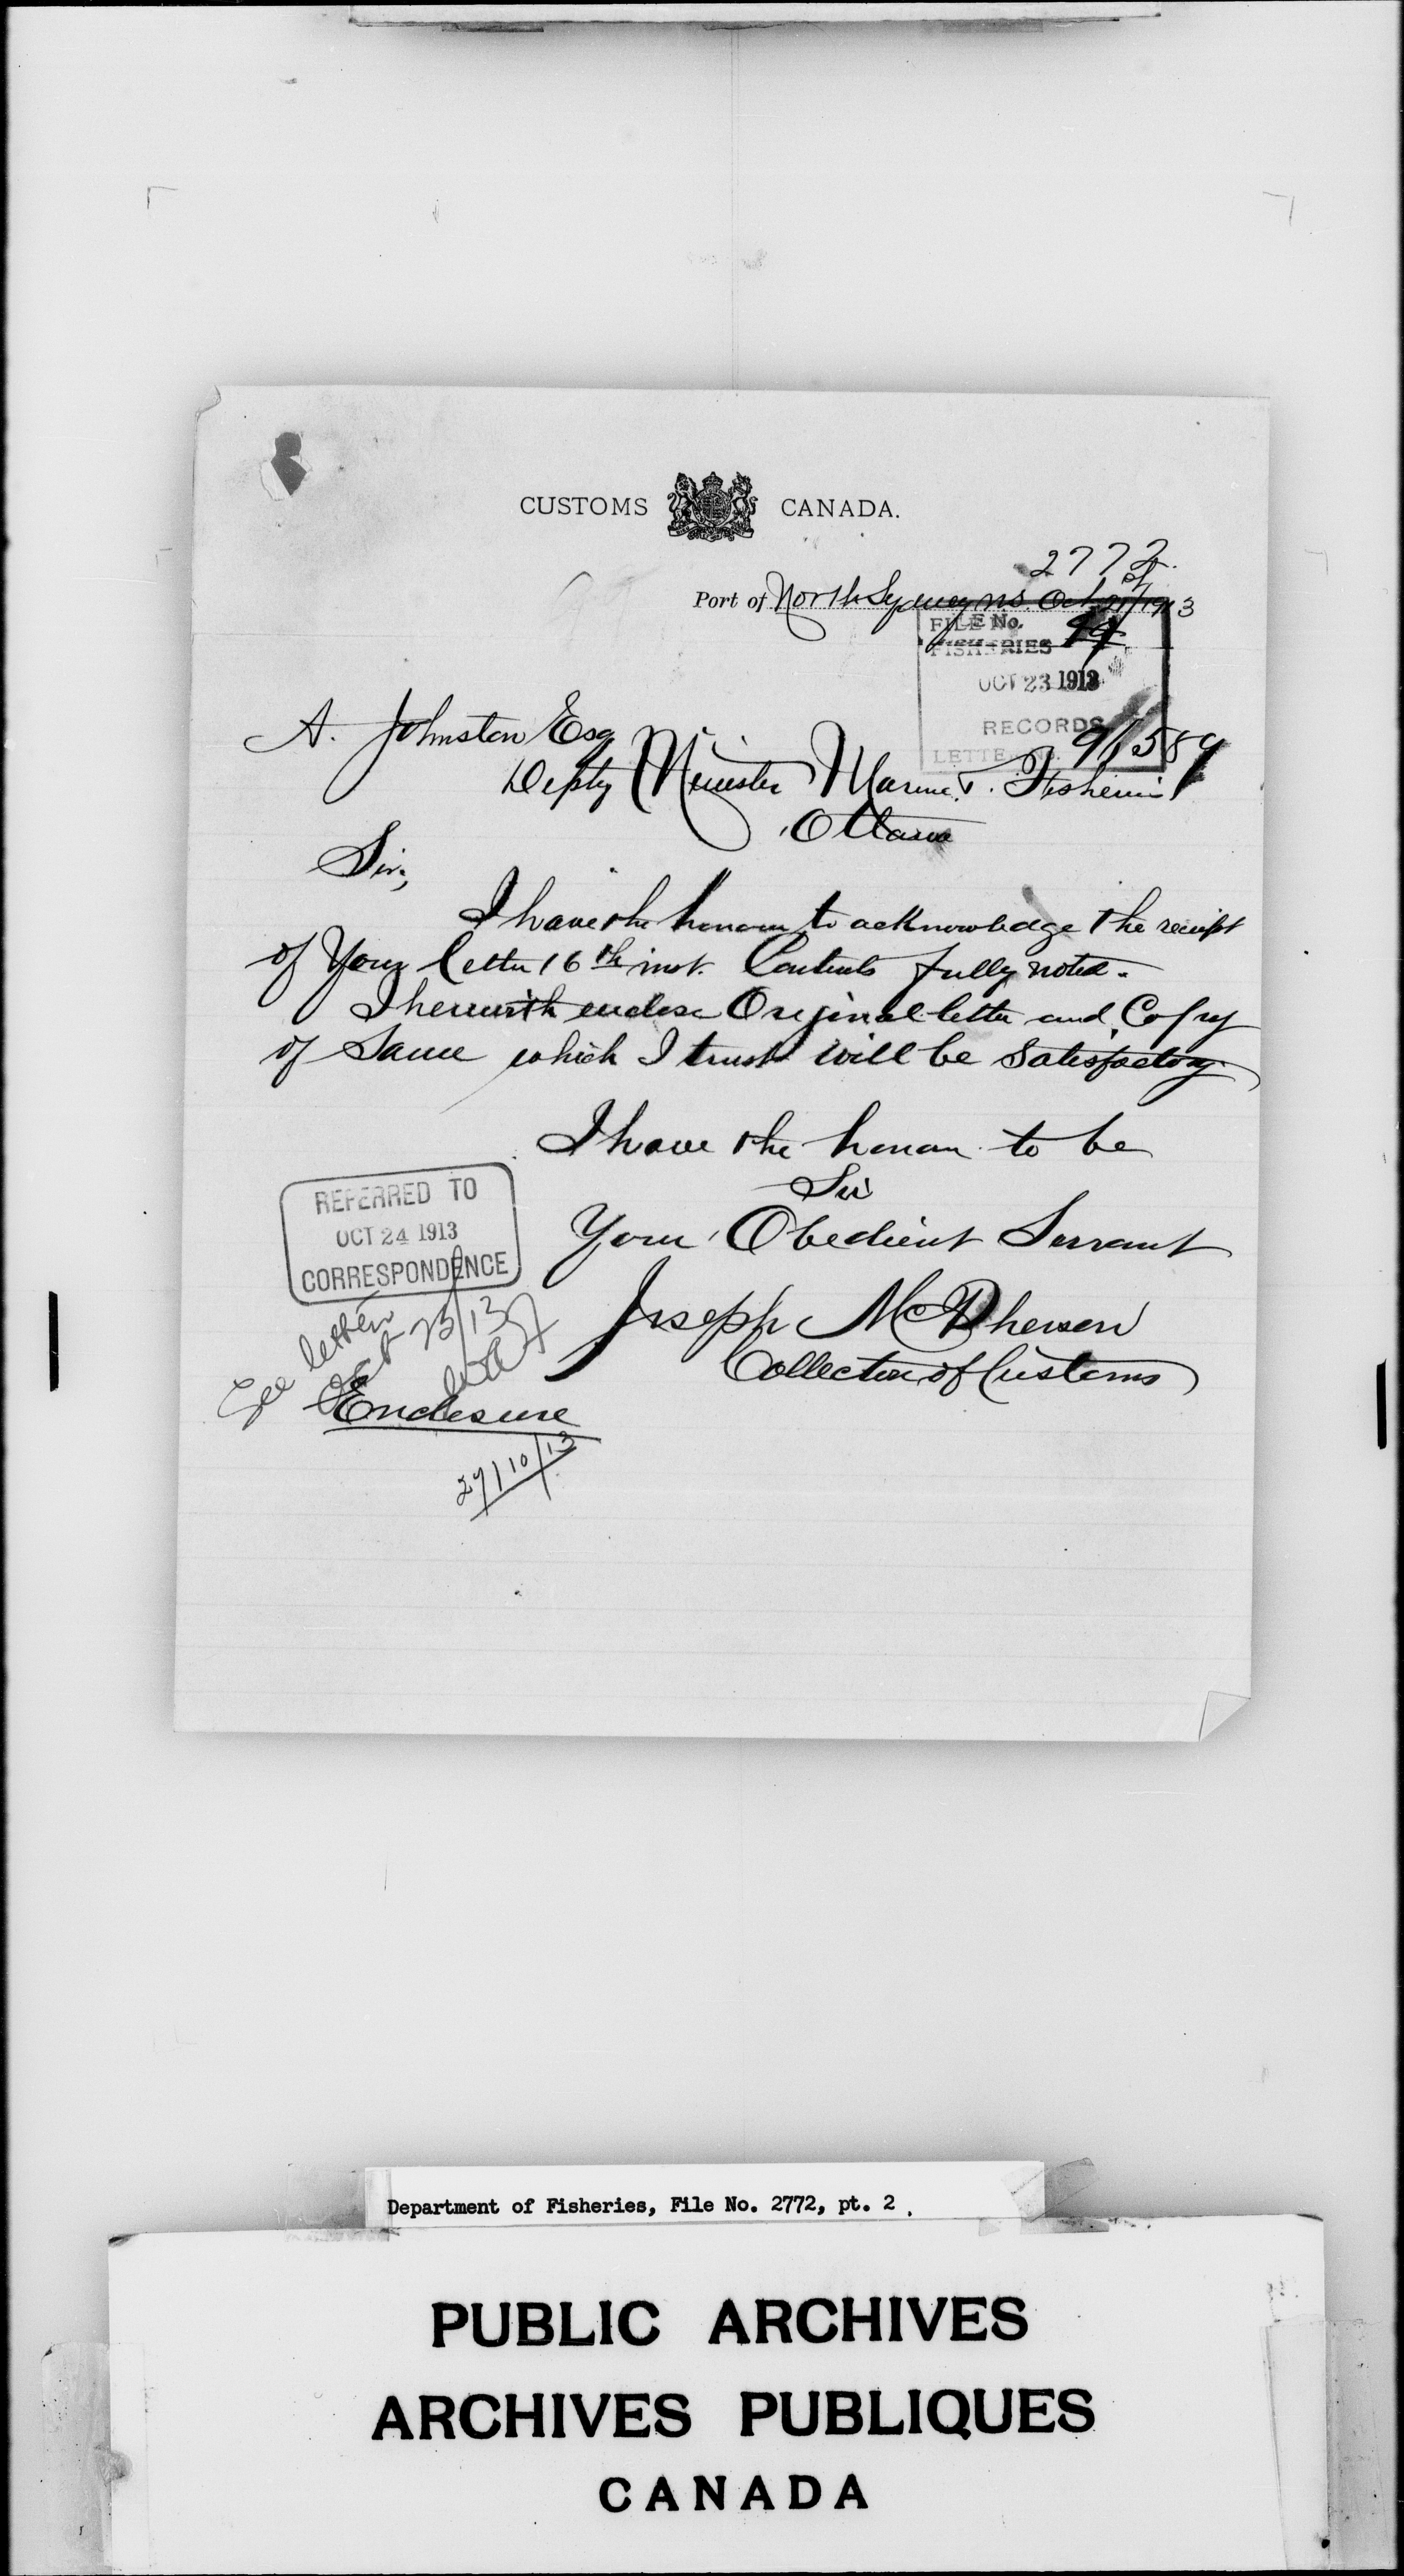 CUSTOMS CANADA.
2772
Port of North Sydney N.S. Oct 21st/1913
FILE No.
FISHERIES 99
OCT 23 1913
RECORDS
LETTER No. 91589
A. Johnston Esq
Depty Minister Marine & Fisheries
Ottawa
Sir,
I have the honour to acknowledge the receipt
of your letter 16th inst. Contents fully noted.
I herewith enclose Original letter and Copy
of Same which I trust will be Satisfactory.
I have the honour to be
Sir
Your Obedient Servant
Joseph McPherson
Collector of Customs
REFERRED TO
OCT 24 1913
CORRESPONDENCE
See letter
Oct 25/13
Enclosure
27/10/13
Department of Fisheries, File No. 2772, pt. 2.
PUBLIC ARCHIVES
ARCHIVES PUBLIQUES
CANADA